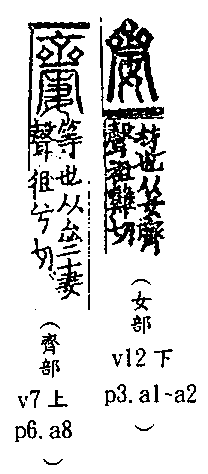 材也从女齊
聲祖雞切
（女部）
v12下
p3.a1-a2
等也从亝妻
聲徂兮切
（齊部）
v7上
p6.a8